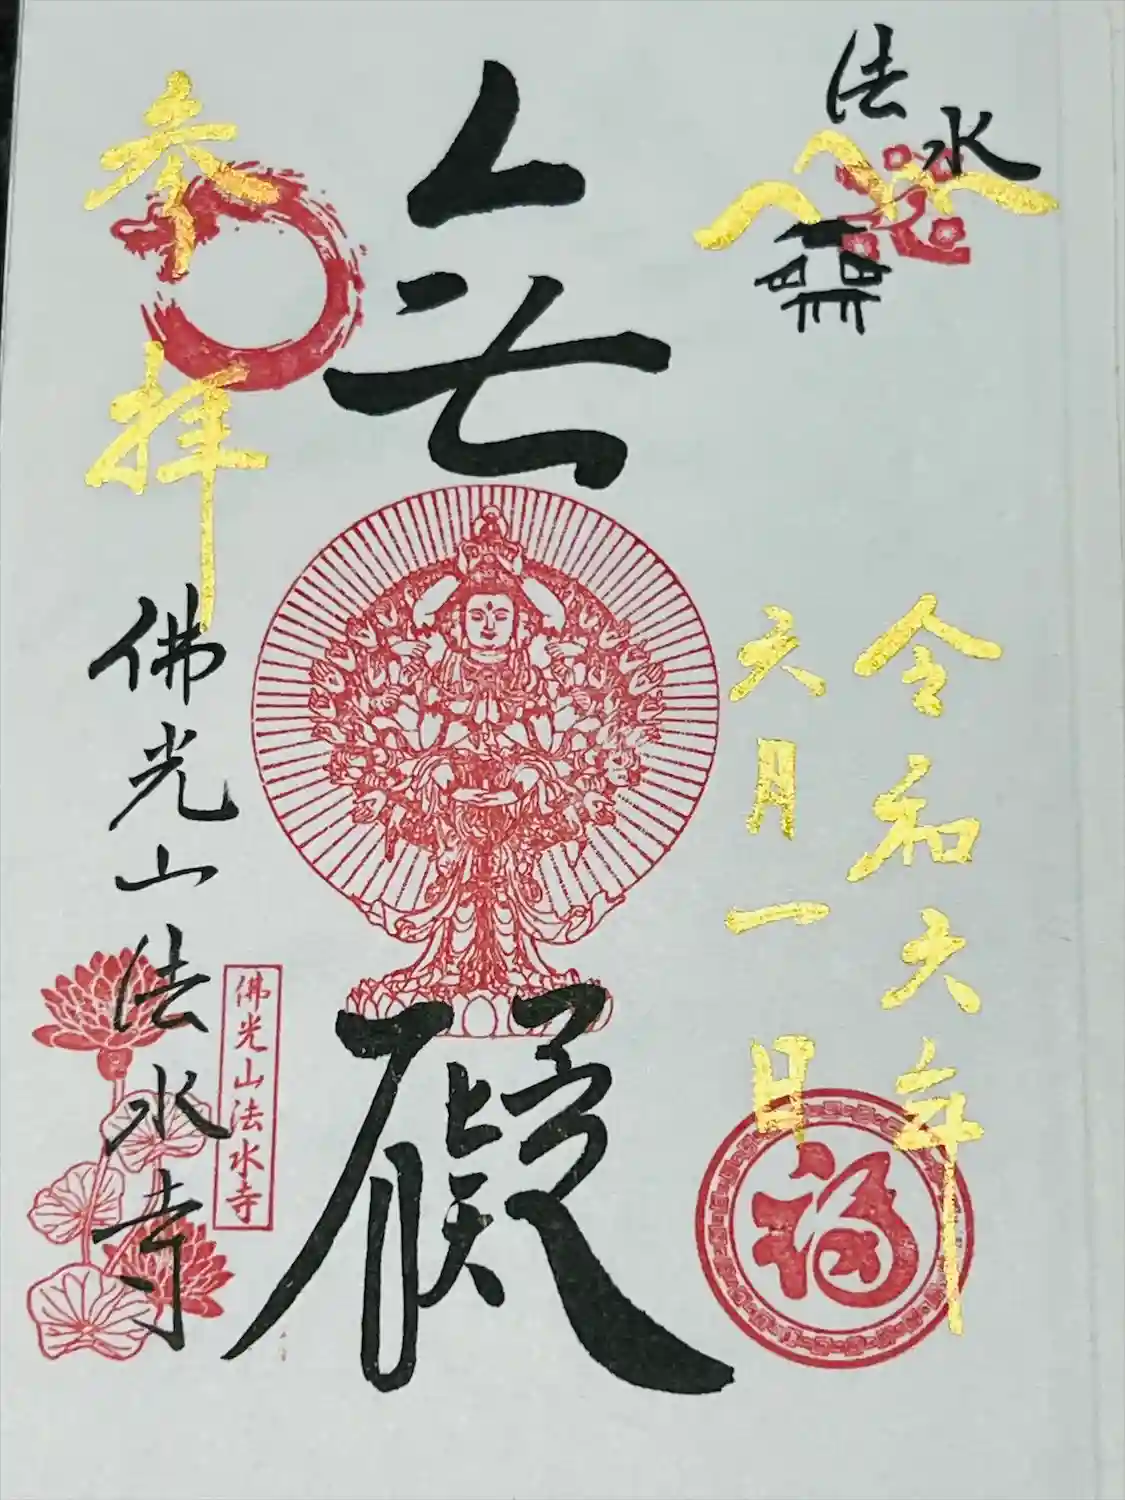 法水
令和六年
六月一日
福
無礙
奉拝
佛光山法水寺
佛光山法水寺